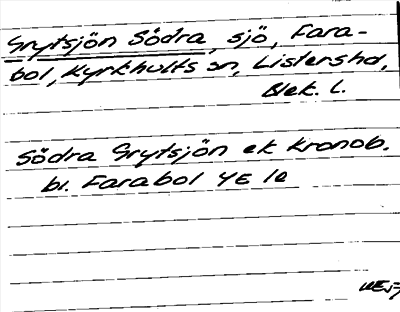 Grytsjön Södra, sjö, Fara-
bol, Kyrkhults sn, Listers hd,
Blek. l.
Södra Grytsjön ek Kronob.
bl. Farabol 4E 1e